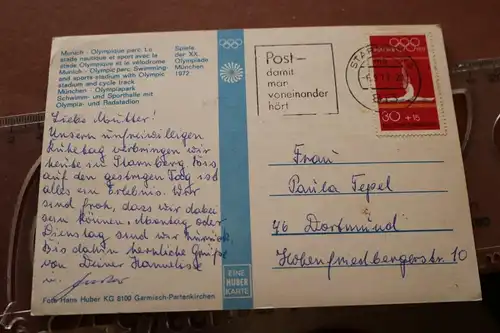 Munich - Olympique parc: Le
stade nautique et sport avec le
stade Olympique et le vélodrome
Munich - Olympic parc, Swimming-
and sports stadium with Olympic
stadium and cycle track
München - Olympiapark
Schwimm- und Sporthalle mit
Olympia- und Radstadion
Spiele
der XX.
Olympiade
München
1972
Liebe Mutter!
Unseren unfreiwilligen
Ruhetag verbringen wir
heute in Starnberg. Bis
auf den gestrigen Tag ist
alles ein Erlebnis. Wir
sind froh, dass wir dabei
sein können. Montag oder
Dienstag sind wir zurück.
Bis dahin herzliche Grüße
von Deiner Hannelise
u.
Foto Hans Huber KG 8100 Garmisch-Partenkirchen
EINE
HUBER
KARTE
Post-
damit
man
voneinander
hört
30 + 15
Frau
Paula Tepel
46 Dortmund
Hohenfriedbergerstr. 10